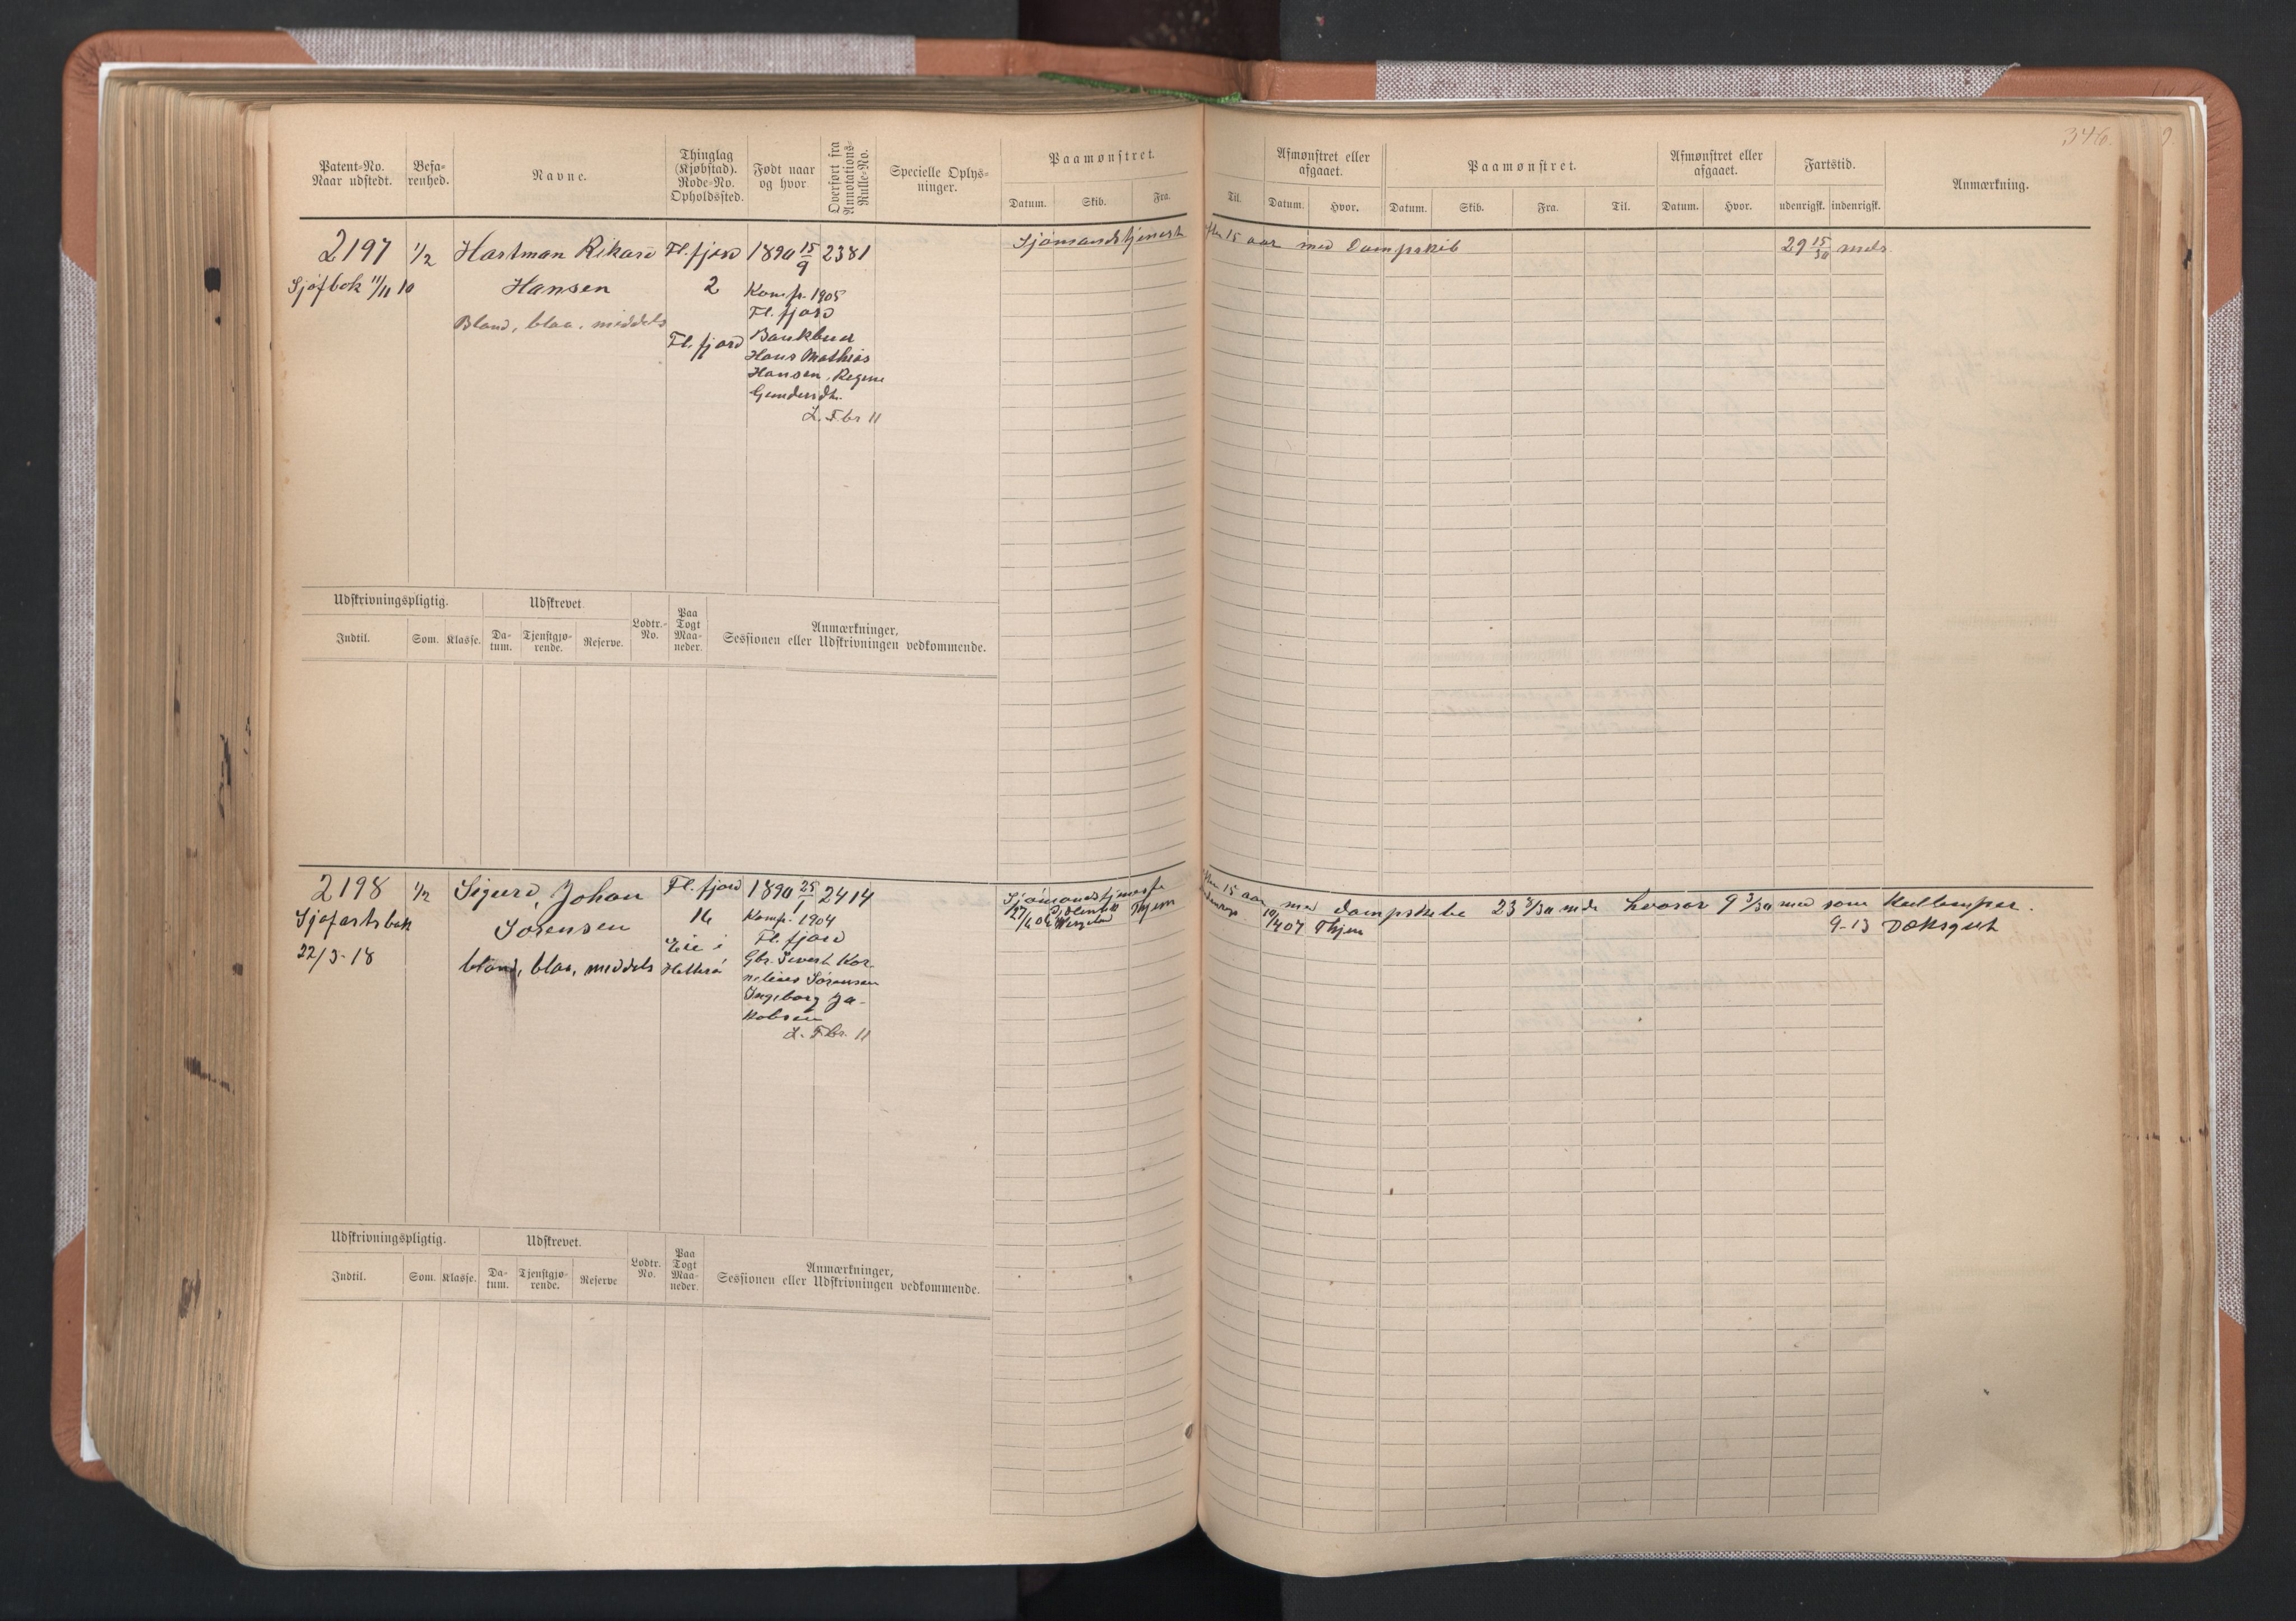 346.
Patent=No. Naar udstedt.
Befa=renhed.
Navne.
Thinglag (Kjøbstad). Rode=No. Opholdssted.
Født naar og hvor.
Overført fra Annotations=Rulle=No.
Specielle Oplys=ninger.
Paamønstret.
Datum. Skib. Fra. Til.
Afmønstret eller afgaaet.
Datum. Hvor.
Paamønstret.
Datum. Skib. Fra. Til.
Afmønstret eller afgaaet.
Datum. Hvor.
Fartstid.
udenrigsk. indenrigsk.
Anmærkning.
2197 1/2 Hartman Rikard Fl. fjord 1890 15/9 2381
Sjøfbok 11/11 10 Hansen 2 Komf. 1905
Fl. fjord
Bland, blaa, middels
Fl. fjord Bankbud
Hans Mathias
Hansen, Regine
Gundersdtr.
L. Fbr 11
Sjømandstjeneste efter 15 aar med Dampskib 29 15/30 mdr
Udskrivningspligtig. Udskrevet. Lodtr.=No. Paa Togt Maa=neder. Anmærkninger,
Sessionen eller Udskrivningen vedkommende.
Indtil. Som. Klasse. Da=tum. Tjenstgjø=rende. Reserve.
2198 1/2 Sigurd, Johan Fl. fjord 1890 25/1 2414
Sjøfartsbok Sørensen 16 Komf. 1904
22/3-18 Fl. fjord
bland, blaa, middels
Gbr. Sivert Kor-
nelius Sørensen
Ingeborg Ja-
kobsen
L. Fbr. 11
Sjømandstjeneste efter 15 aar med dampskibe 23 3/30 mdr hvorav 9 3/30 md som Kullemper.
Hjem Thjem 9-13 Dæksgut
Udskrivningspligtig. Udskrevet. Lodtr. No. Paa Togt Maa=neder. Anmærkninger,
Sessionen eller Udskrivningen vedkommende.
Indtil. Som. Klasse. Da=tum. Tjenstgjø=rende. Reserve